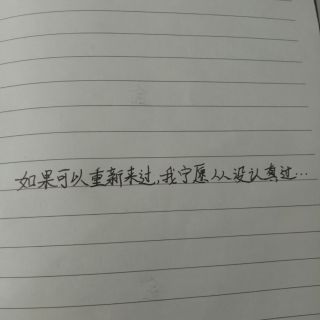 如果可以重新来过,我宁愿从没认真过…